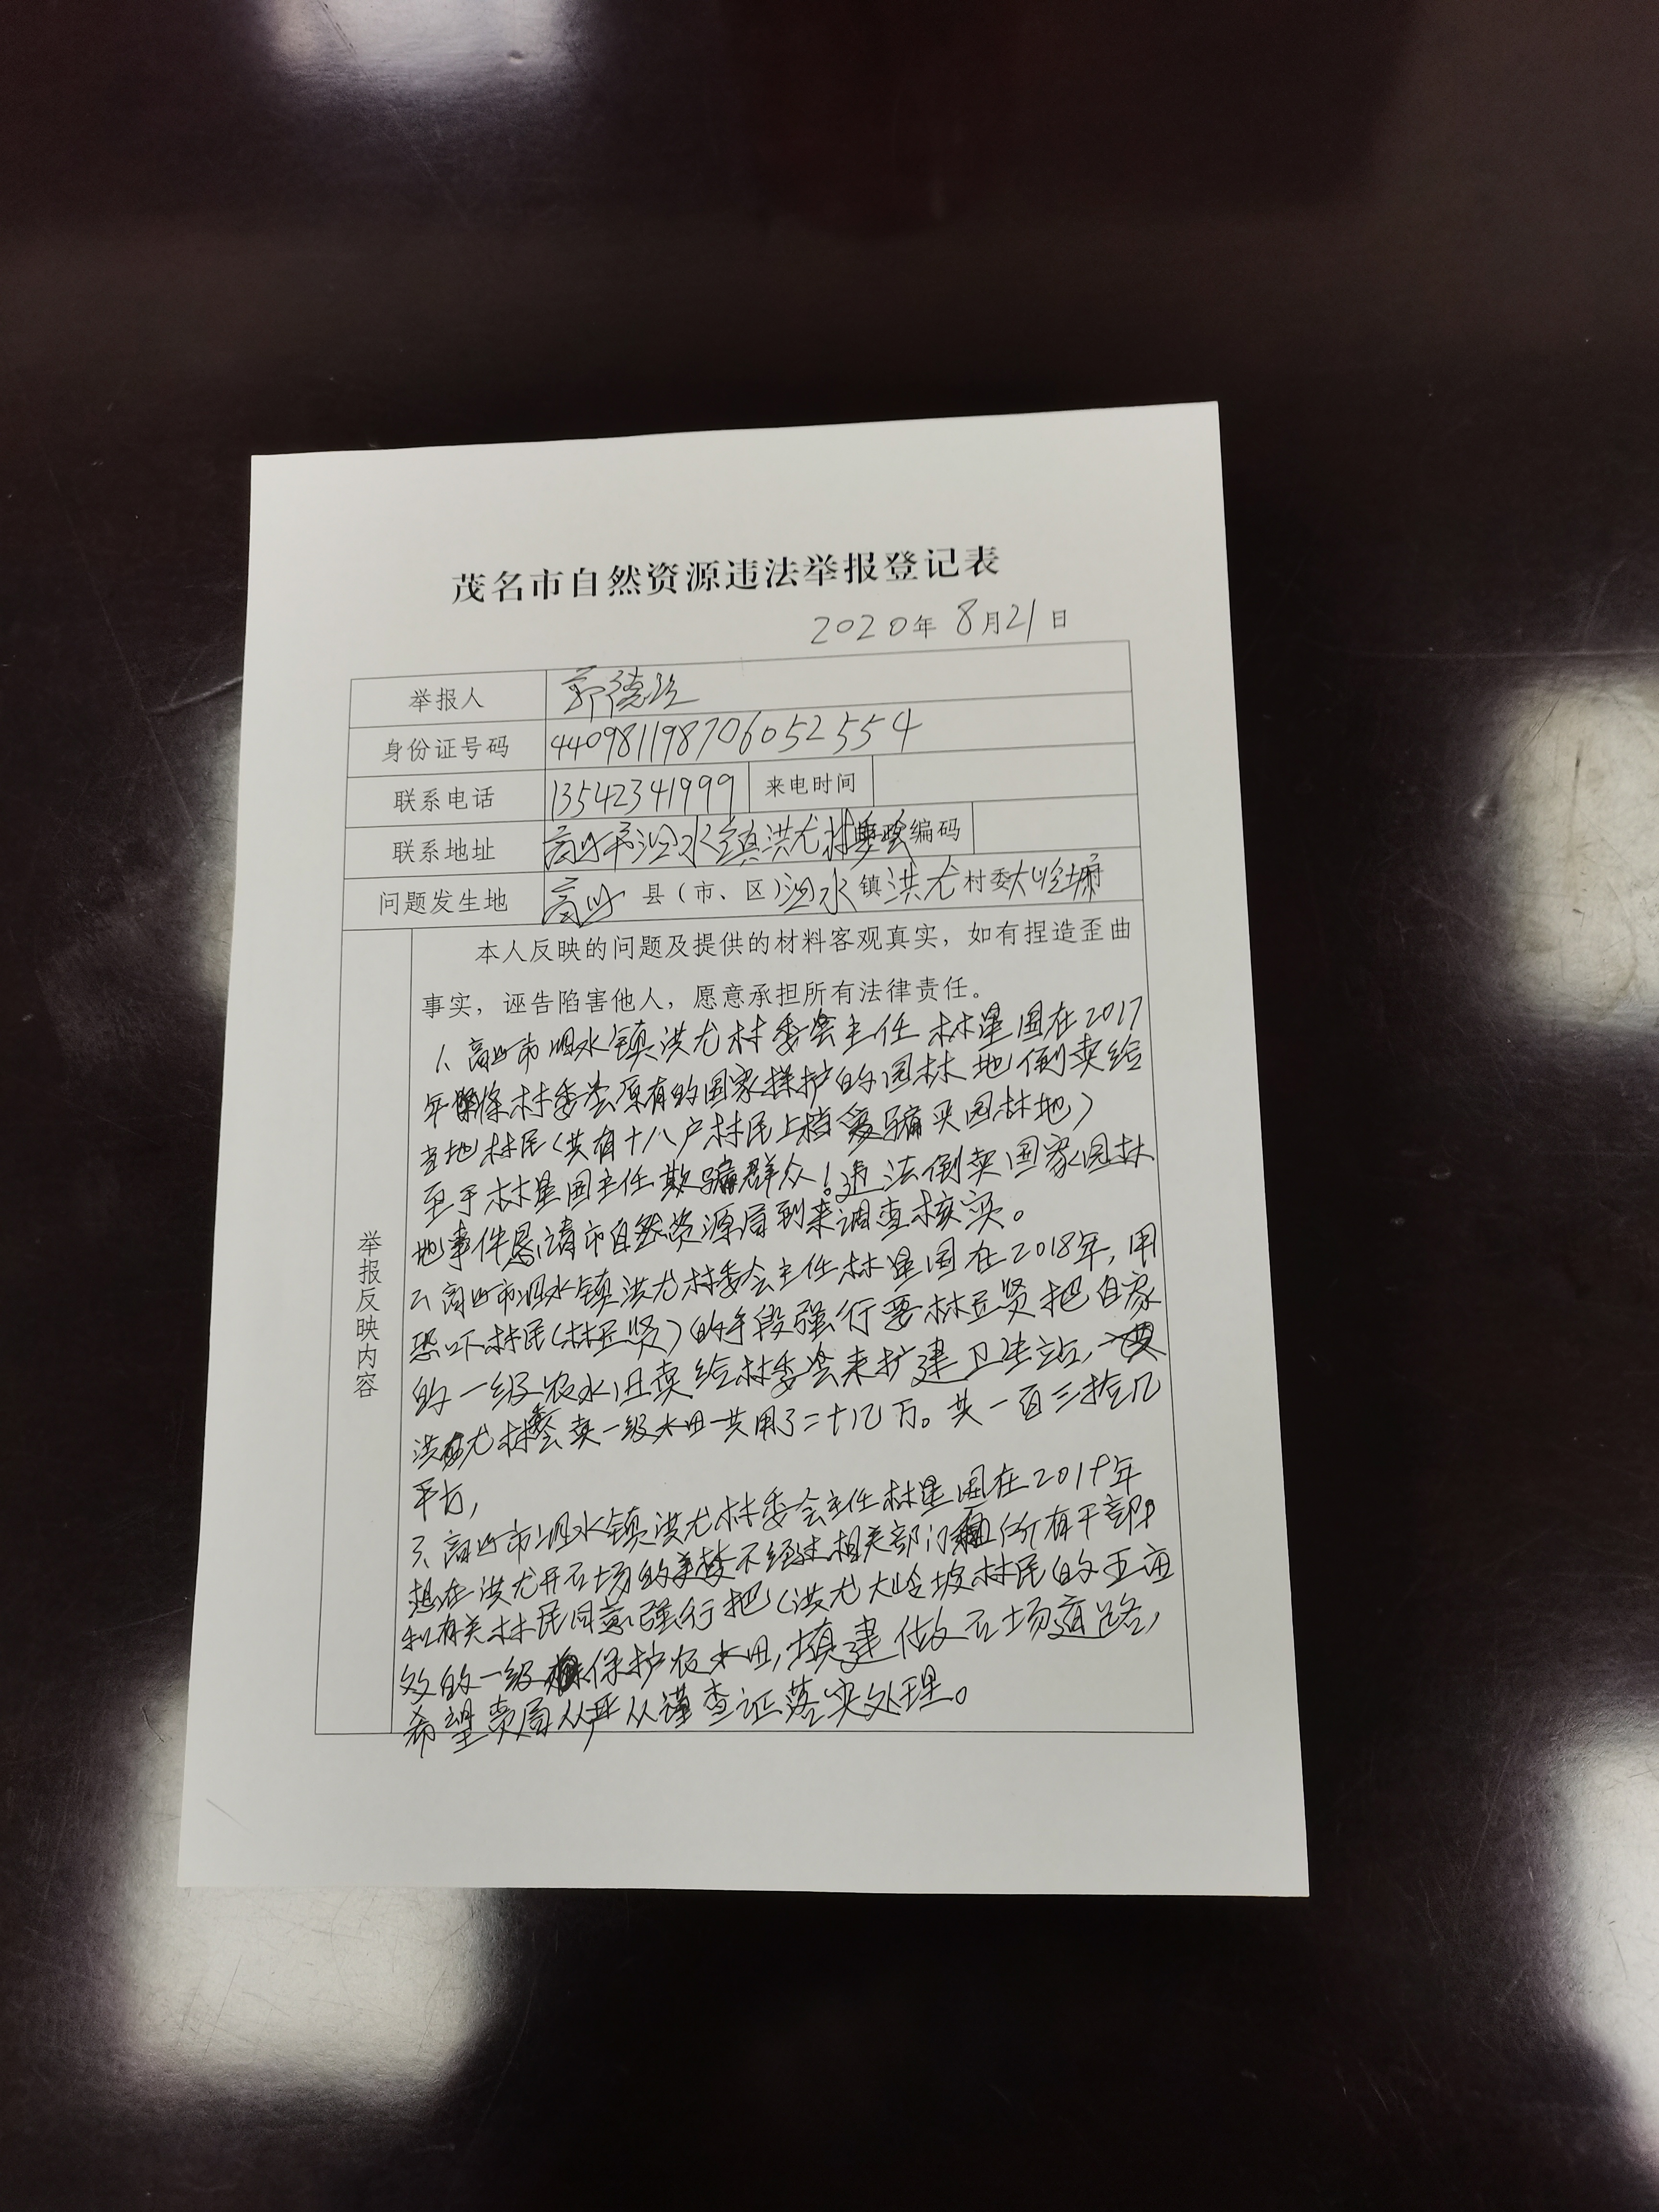 茂名市自然资源违法举报登记表
2020年 8月21日
举报人 郭德
身份证号码 440981198706052554
联系电话 13542341999 来电时间
联系地址 高州市泗水镇洪尤村委会 编码
问题发生地 高州 县（市、区）泗水 镇 洪尤 村委 大岭
举报反映内容
本人反映的问题及提供的材料客观真实，如有捏造歪曲
事实，诬告陷害他人，愿意承担所有法律责任。
1、高州市泗水镇洪尤村委会主任林星国在2017
年 将村委会原有的国家保护的园林地倒卖给
当地村民（共有十八户村民上档受骗买园林地）
至于林星国主任欺骗群众！违法倒卖国家园林
地事件恳请市自然资源局到来调查核实。
2、高州市泗水镇洪尤村委会主任林星国在2018年，用
恐吓村民（林 贤）的手段强行要林 贤把自家
的一级农水田卖给村委会来扩建卫生站，
洪尤村委会买一级水田一共用了二十几万。共一百三拾几
平方，
3、高州市泗水镇洪尤村委会主任林星国在2019年
想在洪尤开石场的美梦不经过相关部门和 所有干部
和有关村民同意强行把（洪尤大岭坡村民的 亩
的一级 保护农水田，填建做石场道路，
希望贵局从严从谨查证落实处理。